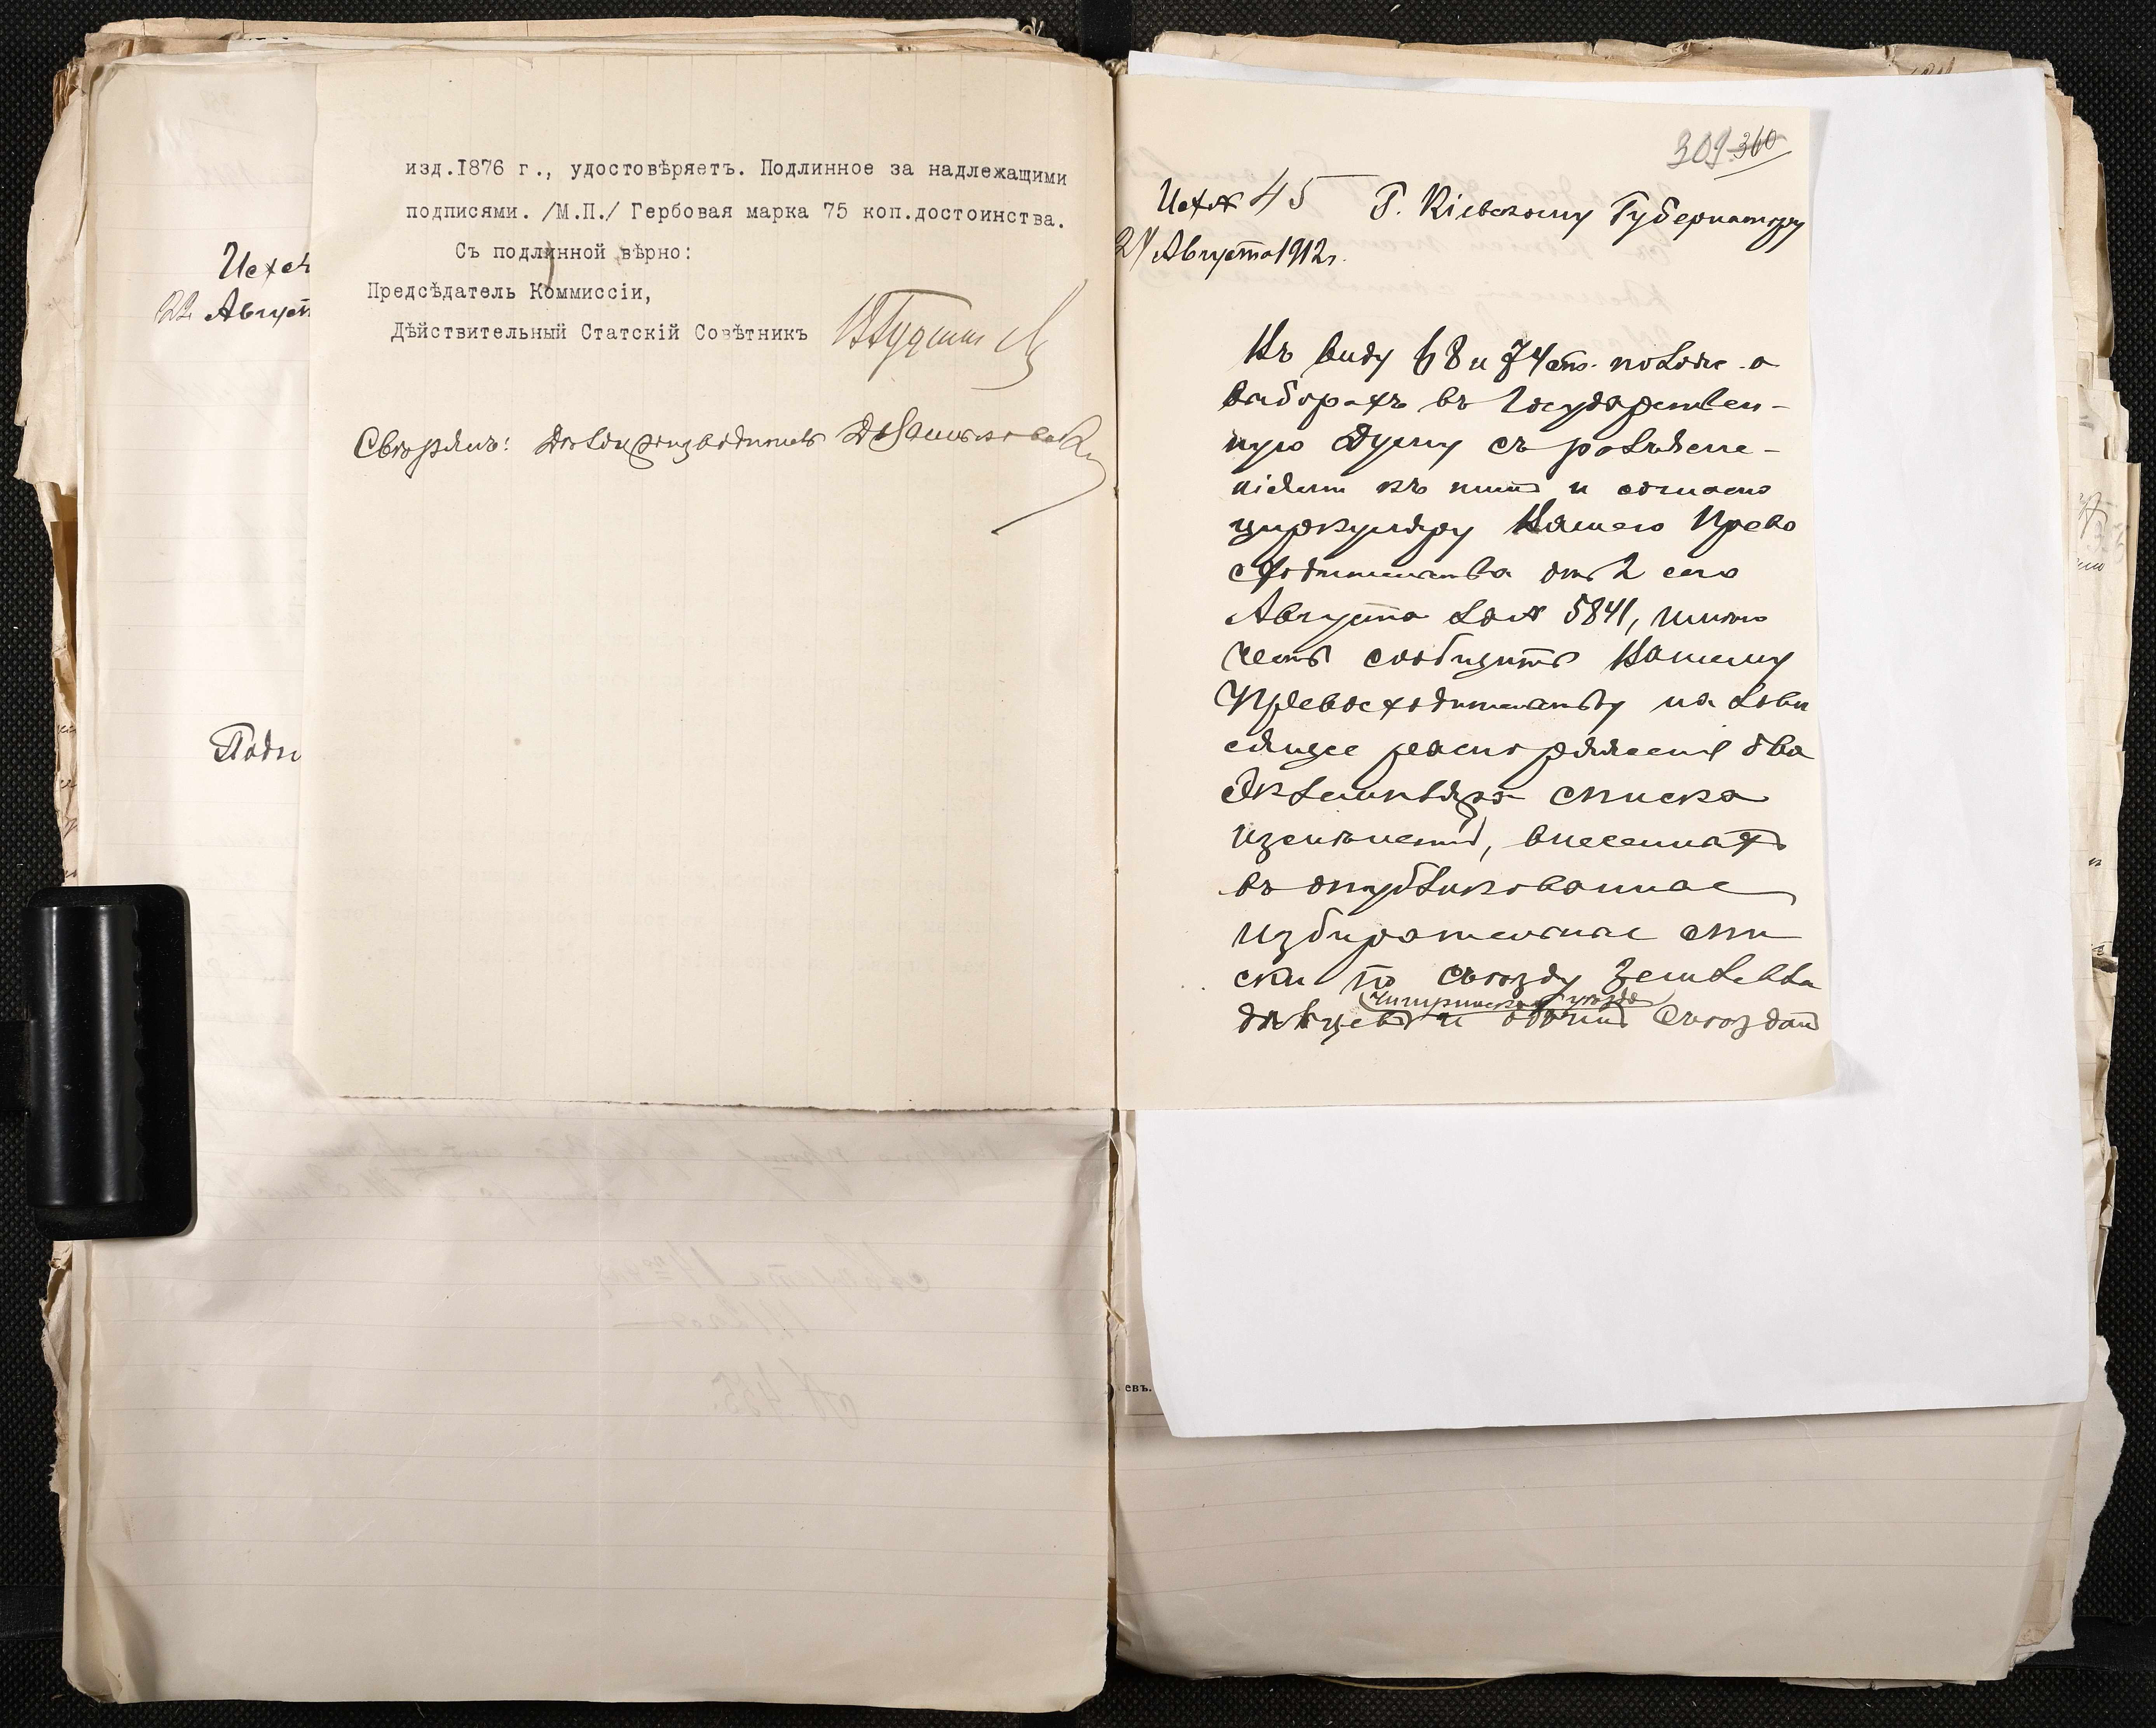 изд.1876 г., удостовѣряетъ. Подлинное за надлежащими
подписями. /М.П./ Гербовая марка 75 коп.достоинства.
Съ подлинной вѣрно:
Предсѣдатель Коммиссіи,
Дѣйствительный Статскій Совѣтникъ
Свѣрялъ: Дѣлопроизводитель
Исх №
22 Август
Подл
309 360
Исх № 45 Г. Кіевскому Губернатору
24 Августа 1912 г.
Въ виду 68 и 74 ст. полож. о
выборахъ въ Государствен-
ную Думу съ разъясне-
ніями къ нимъ и согласно
циркуляру Вашего Прево
сходительства отъ 2 сего
Августа за № 5841, имѣю
честь сообщить Вашему
Превосходительству на зави
сящее распоряженіе два
экземпляра списка
измѣненій, внесенныхъ
въ опубликованные
избирательные спи
ски по съѣзду землевла
Чигиринскаго уѣзда
дѣльцевъ и обоимъ съѣздамъ
евъ.